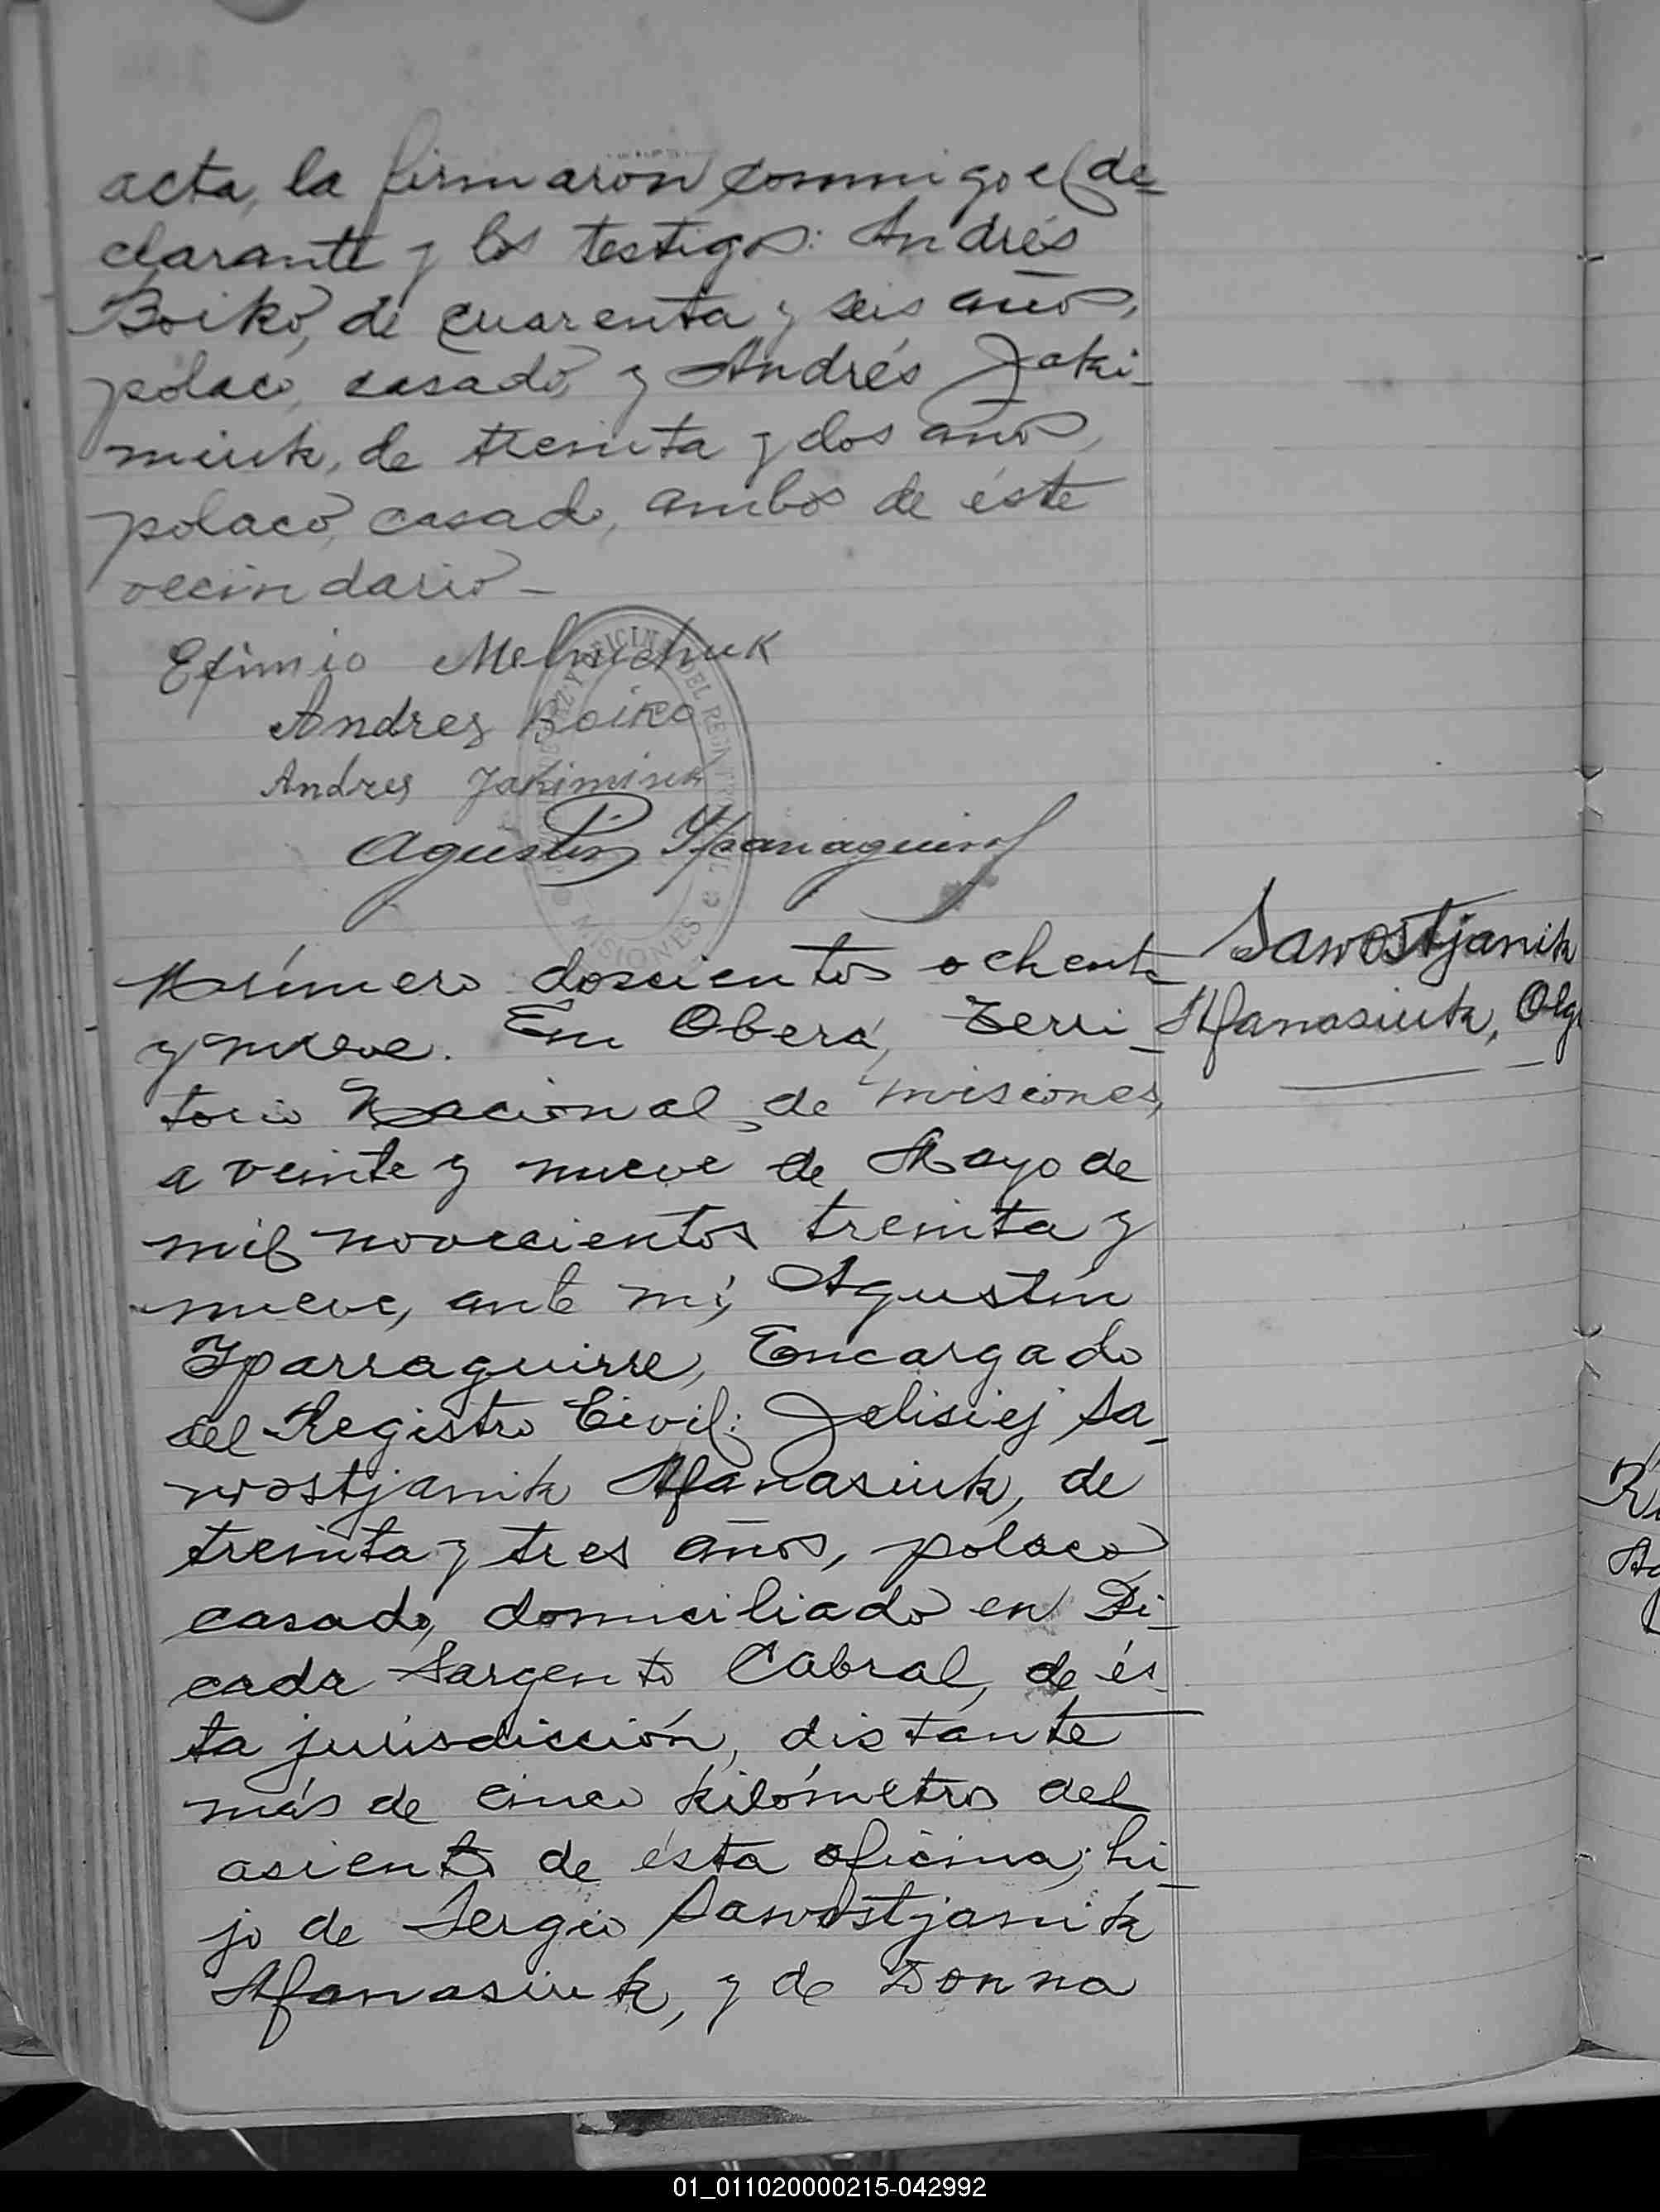 acta, la firmaron conmigo el de-
clarante y los testigos: Andrés
Boiko, de cuarenta y seis años,
polaco, casado, y Andrés Jaki-
miuk, de treinta y dos años,
polaco, casado, ambos de éste
vecindario-
Efimio Melnichuk
Andres Boiko
Andres Jakimiuk
Agustin Yparraguirre
Número doscientos ochenta
y nueve. En Oberá, Terri-
torio Nacional de Misiones,
a veinte y nueve de Mayo de
mil novecientos treinta y
nueve, ante mí, Agustín
Yparraguirre, Encargado
del Registro Civil: Jelisiej Sa-
wostjanik Afanasiuk, de
treinta y tres años, polaco
casado, domiciliado en Pi-
cada Sargento Cabral, de és-
ta jurisdicción, distante
más de cinco kilómetros del
asiento de ésta oficina; hi-
jo de Sergio Sawostjanik
Afanasiuk, y de Donna
Sawostjanik
Afanasiuk, Olga
MISIONES
01_011020000215-042992